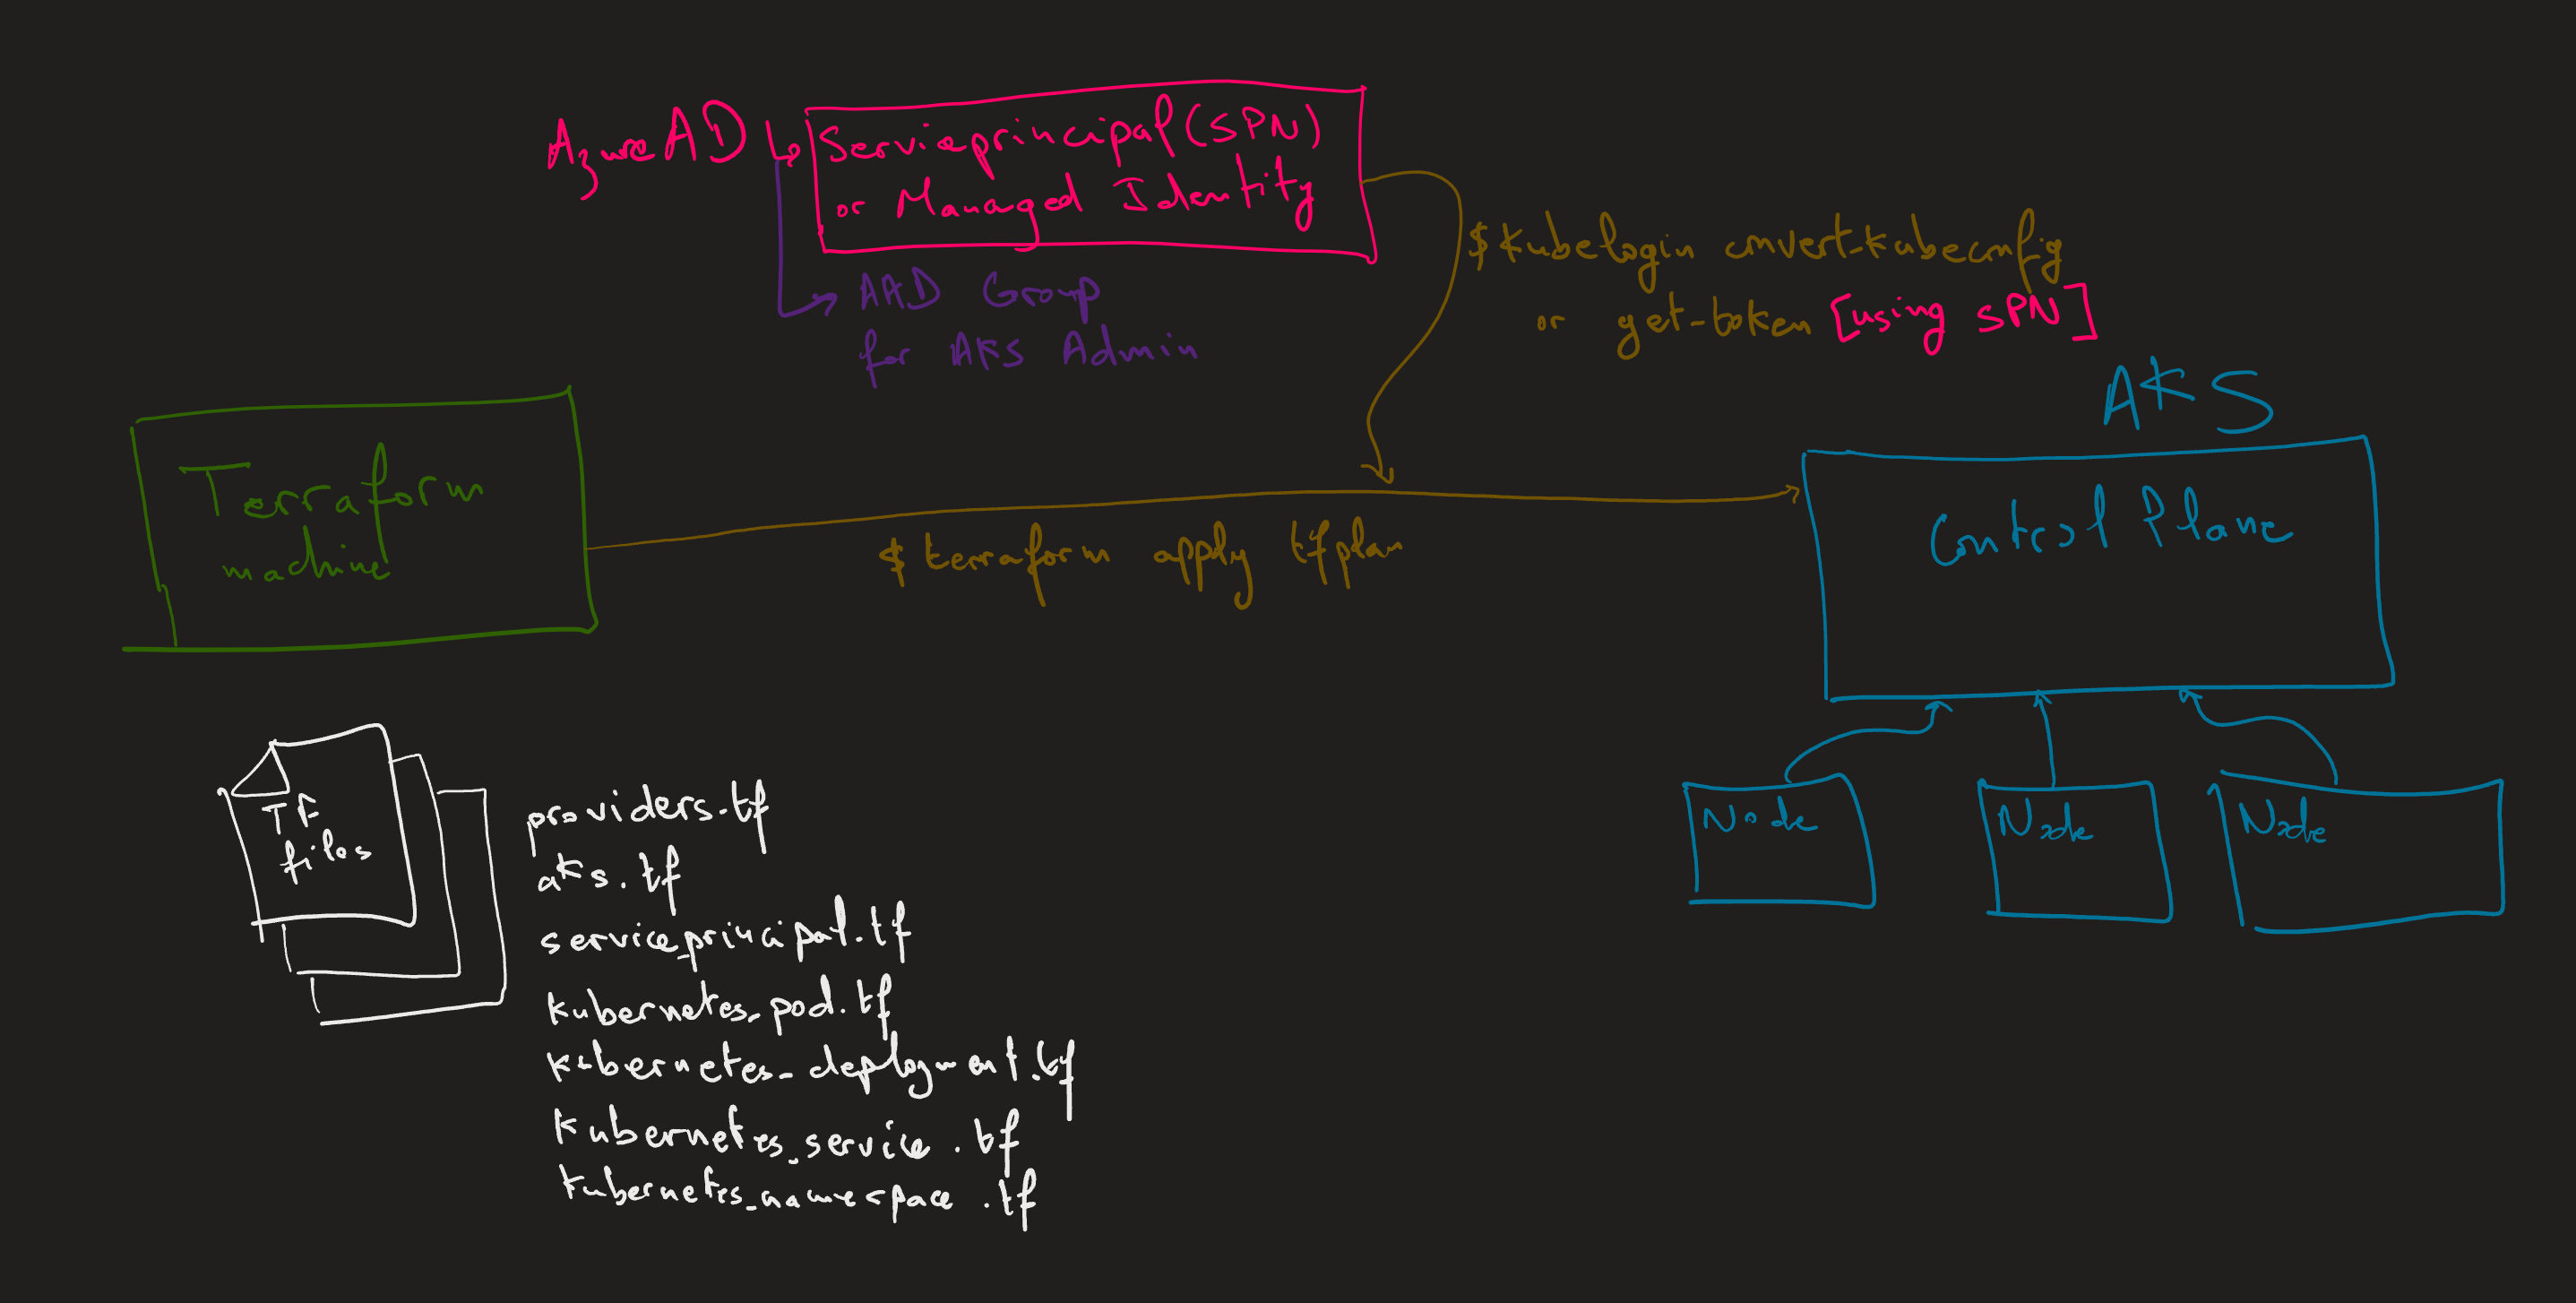 AzureAD ↳ Serviceprincipal (SPN)
or Managed Identity
AAD Group
for AKS Admin
$ kubelogin convert-kubeconfig
or get-token [using SPN]
AKS
Terraform
machine
$ terraform apply tfplan
Control Plane
Node
Node
Node
TF
files
providers.tf
aks.tf
service_principal.tf
kubernetes_pod.tf
kubernetes_deployment.tf
kubernetes_service.tf
kubernetes_namespace.tf